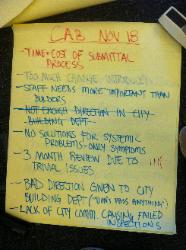 CAB NOV 18
- TIME + COST OF SUBMITTAL
PROCESS
- TOO MUCH CHANGE INTRODUCED
- STAFF NEEDS MORE IMPORTANT THAN
BUILDERS
- NOT ENOUGH DIRECTION IN CITY
BUILDING DEPT.
- NO SOLUTIONS FOR SYSTEMIC
PROBLEMS - ONLY SYMPTOMS
- 3 MONTH REVIEW DUE TO
TRIVIAL ISSUES
- BAD DIRECTION GIVEN TO CITY
BUILDING DEPT ANYTHING")
- LACK OF CITY COMM. CAUSING FAILED
INSPECTIONS